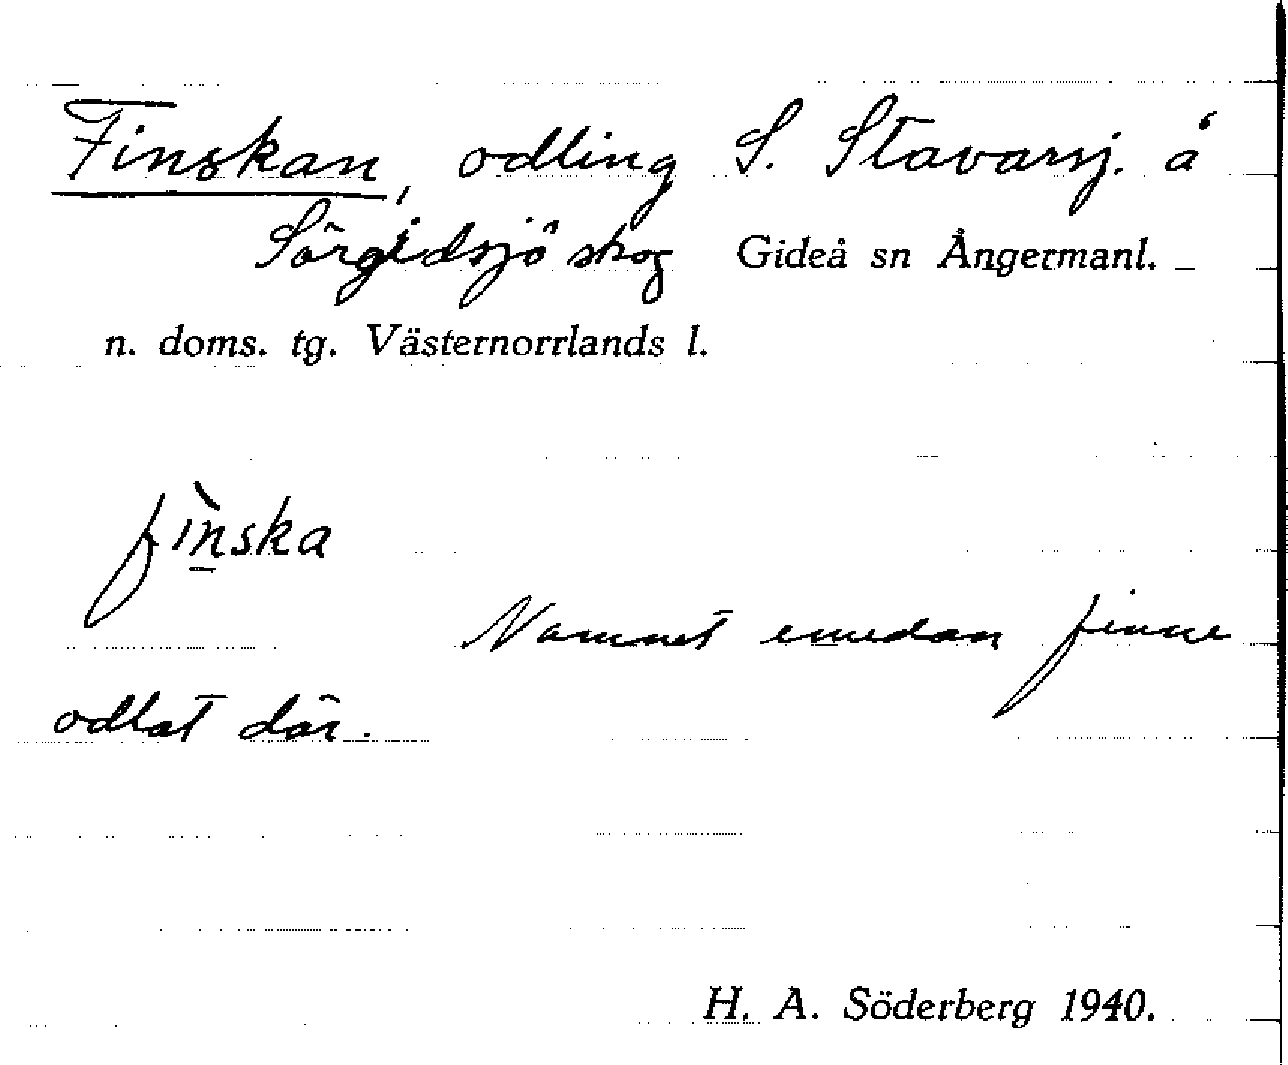 Finskan, odling S. Stavarsj. å
Sörgidsjö skog Gideå sn Ångermanl.
n. doms. tg. Västernorrlands l.
fìn̲ska
Namnet emedan finne
odlat där.
H. A. Söderberg 1940.